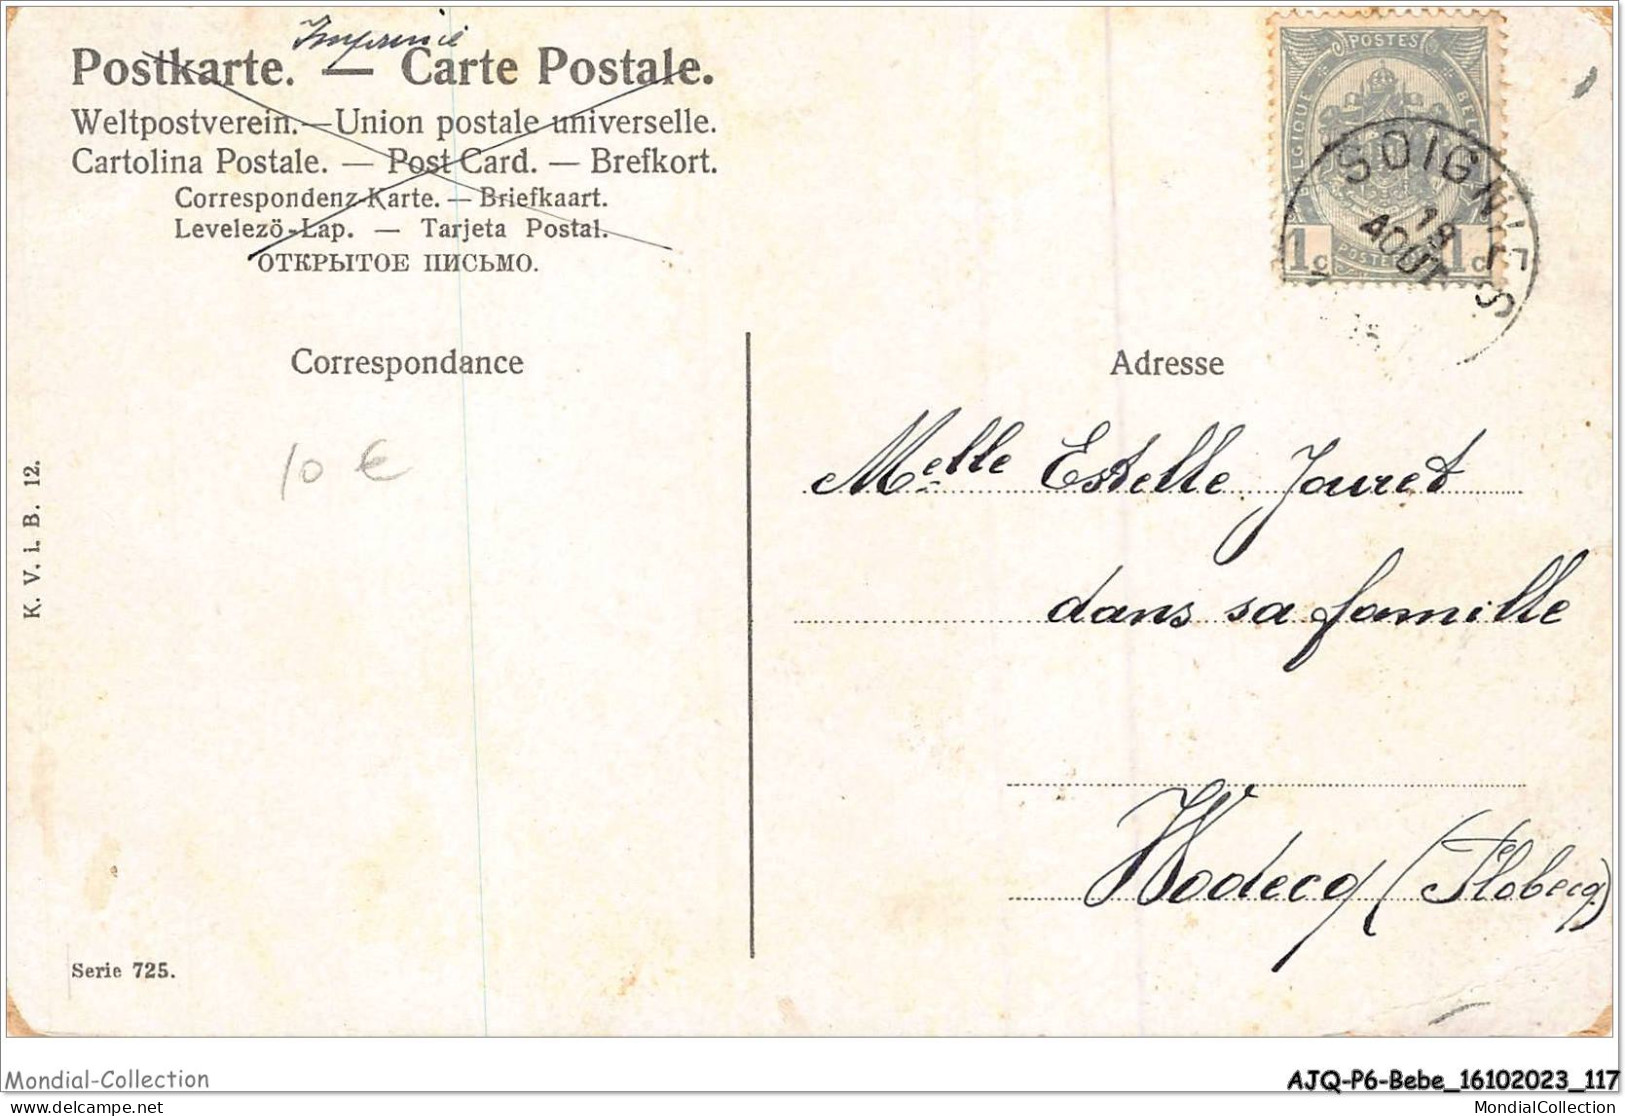 Imprimé
Postkarte. — Carte Postale.
Weltpostverein. — Union postale universelle.
Cartolina Postale. — Post Card. — Brefkort.
Correspondenz-Karte. — Briefkaart.
Levelezö-Lap. — Tarjeta Postal.
ОТКРЫТОЕ ПИСЬМО.
POSTES
BELGIQUE
1c POSTERIJEN 1c
SOIGNIES
18
AOUT
Correspondance
Adresse
10 €
K. V. i. B. 12.
Melle Estelle Jouret
dans sa famille
Wodecq (Flobecq)
Serie 725.
Mondial-Collection
AJQ-P6-Bebe_16102023_117
delcampe.net
MondialCollection